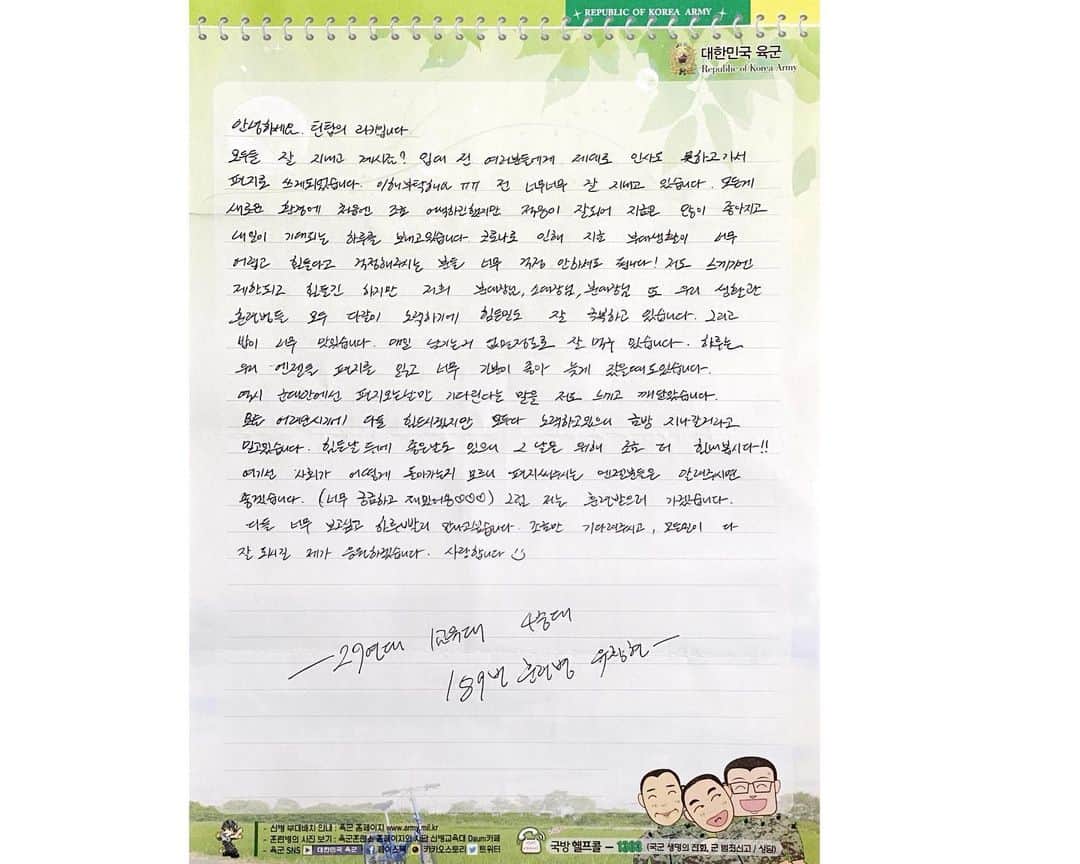 REPUBLIC OF KOREA ARMY
대한민국 육군
Republic of Korea Army
안녕하세요. 틴탑의 리키입니다
모두들 잘 지내고 계시죠? 입대 전 여러분들에게 제대로 인사도 못하고가서
편지로 쓰게되었습니다. 이해부탁해요 ㅠㅠ 전 너무너무 잘 지내고 있습니다. 모든게
새로운 환경에 처음엔 조금 어색하긴했지만 적응이 잘되어 지금은 많이 좋아지고
내일이 기대되는 하루를 보내고있습니다 코로나로 인해 지금 부대생활이 너무
어렵고 힘들다고 걱정해주시는 분들 너무 걱정 안하셔도 됩니다! 저도 느끼기엔
제한되고 힘들긴 하지만 저희 분대장님, 소대장님, 분대장님 또 우리 생활관
훈련병들 모두 다같이 노력하기에 힘든일도 잘 극복하고 있습니다. 그리고
밥이 너무 맛있습니다. 매일 남기는거 없는정도로 잘 먹구 있습니다. 하루는
우리 엔젤들 편지를 읽고 너무 기분이 좋아 늦게 잤을때도있습니다.
역시 군대안에선 편지오는날만 기다린다는 말을 저도 느끼고 깨달았습니다.
모든 어려운시기에 다들 힘드시겠지만 모두다 노력하고있으니 금방 지나갈거라고
믿고있습니다. 힘든날 뒤에 좋은날도 있으니 그 날을 위해 조금 더 힘내봅시다!!
여기선 사회가 어떻게 돌아가는지 모르니 편지써주시는 엔젤분들은 알려주시면
좋겠습니다. (너무 궁금하고 재밌어용♡♡♡) 그럼 저는 훈련받으러 가겠습니다.
다들 너무 보고싶고 하루빨리 만나고싶습니다 조금만 기다려주시고, 모든일이 다
잘 되시길 제가 응원하겠습니다. 사랑합니다
29연대 1교육대 4중대
189번 훈련병 유창현
- 신병 부대배치 안내 : 육군 홈페이지 www.army.mil.kr
- 훈련병의 사진 보기 : 육군훈련소 홈페이지와 사단 신병교육대 Daum카페
- 육군 SNS 대한민국 육군 페이스북 카카오스토리 트위터
국방 헬프콜 – 1303 (국군 생명의 전화, 군 범죄신고 / 상담)